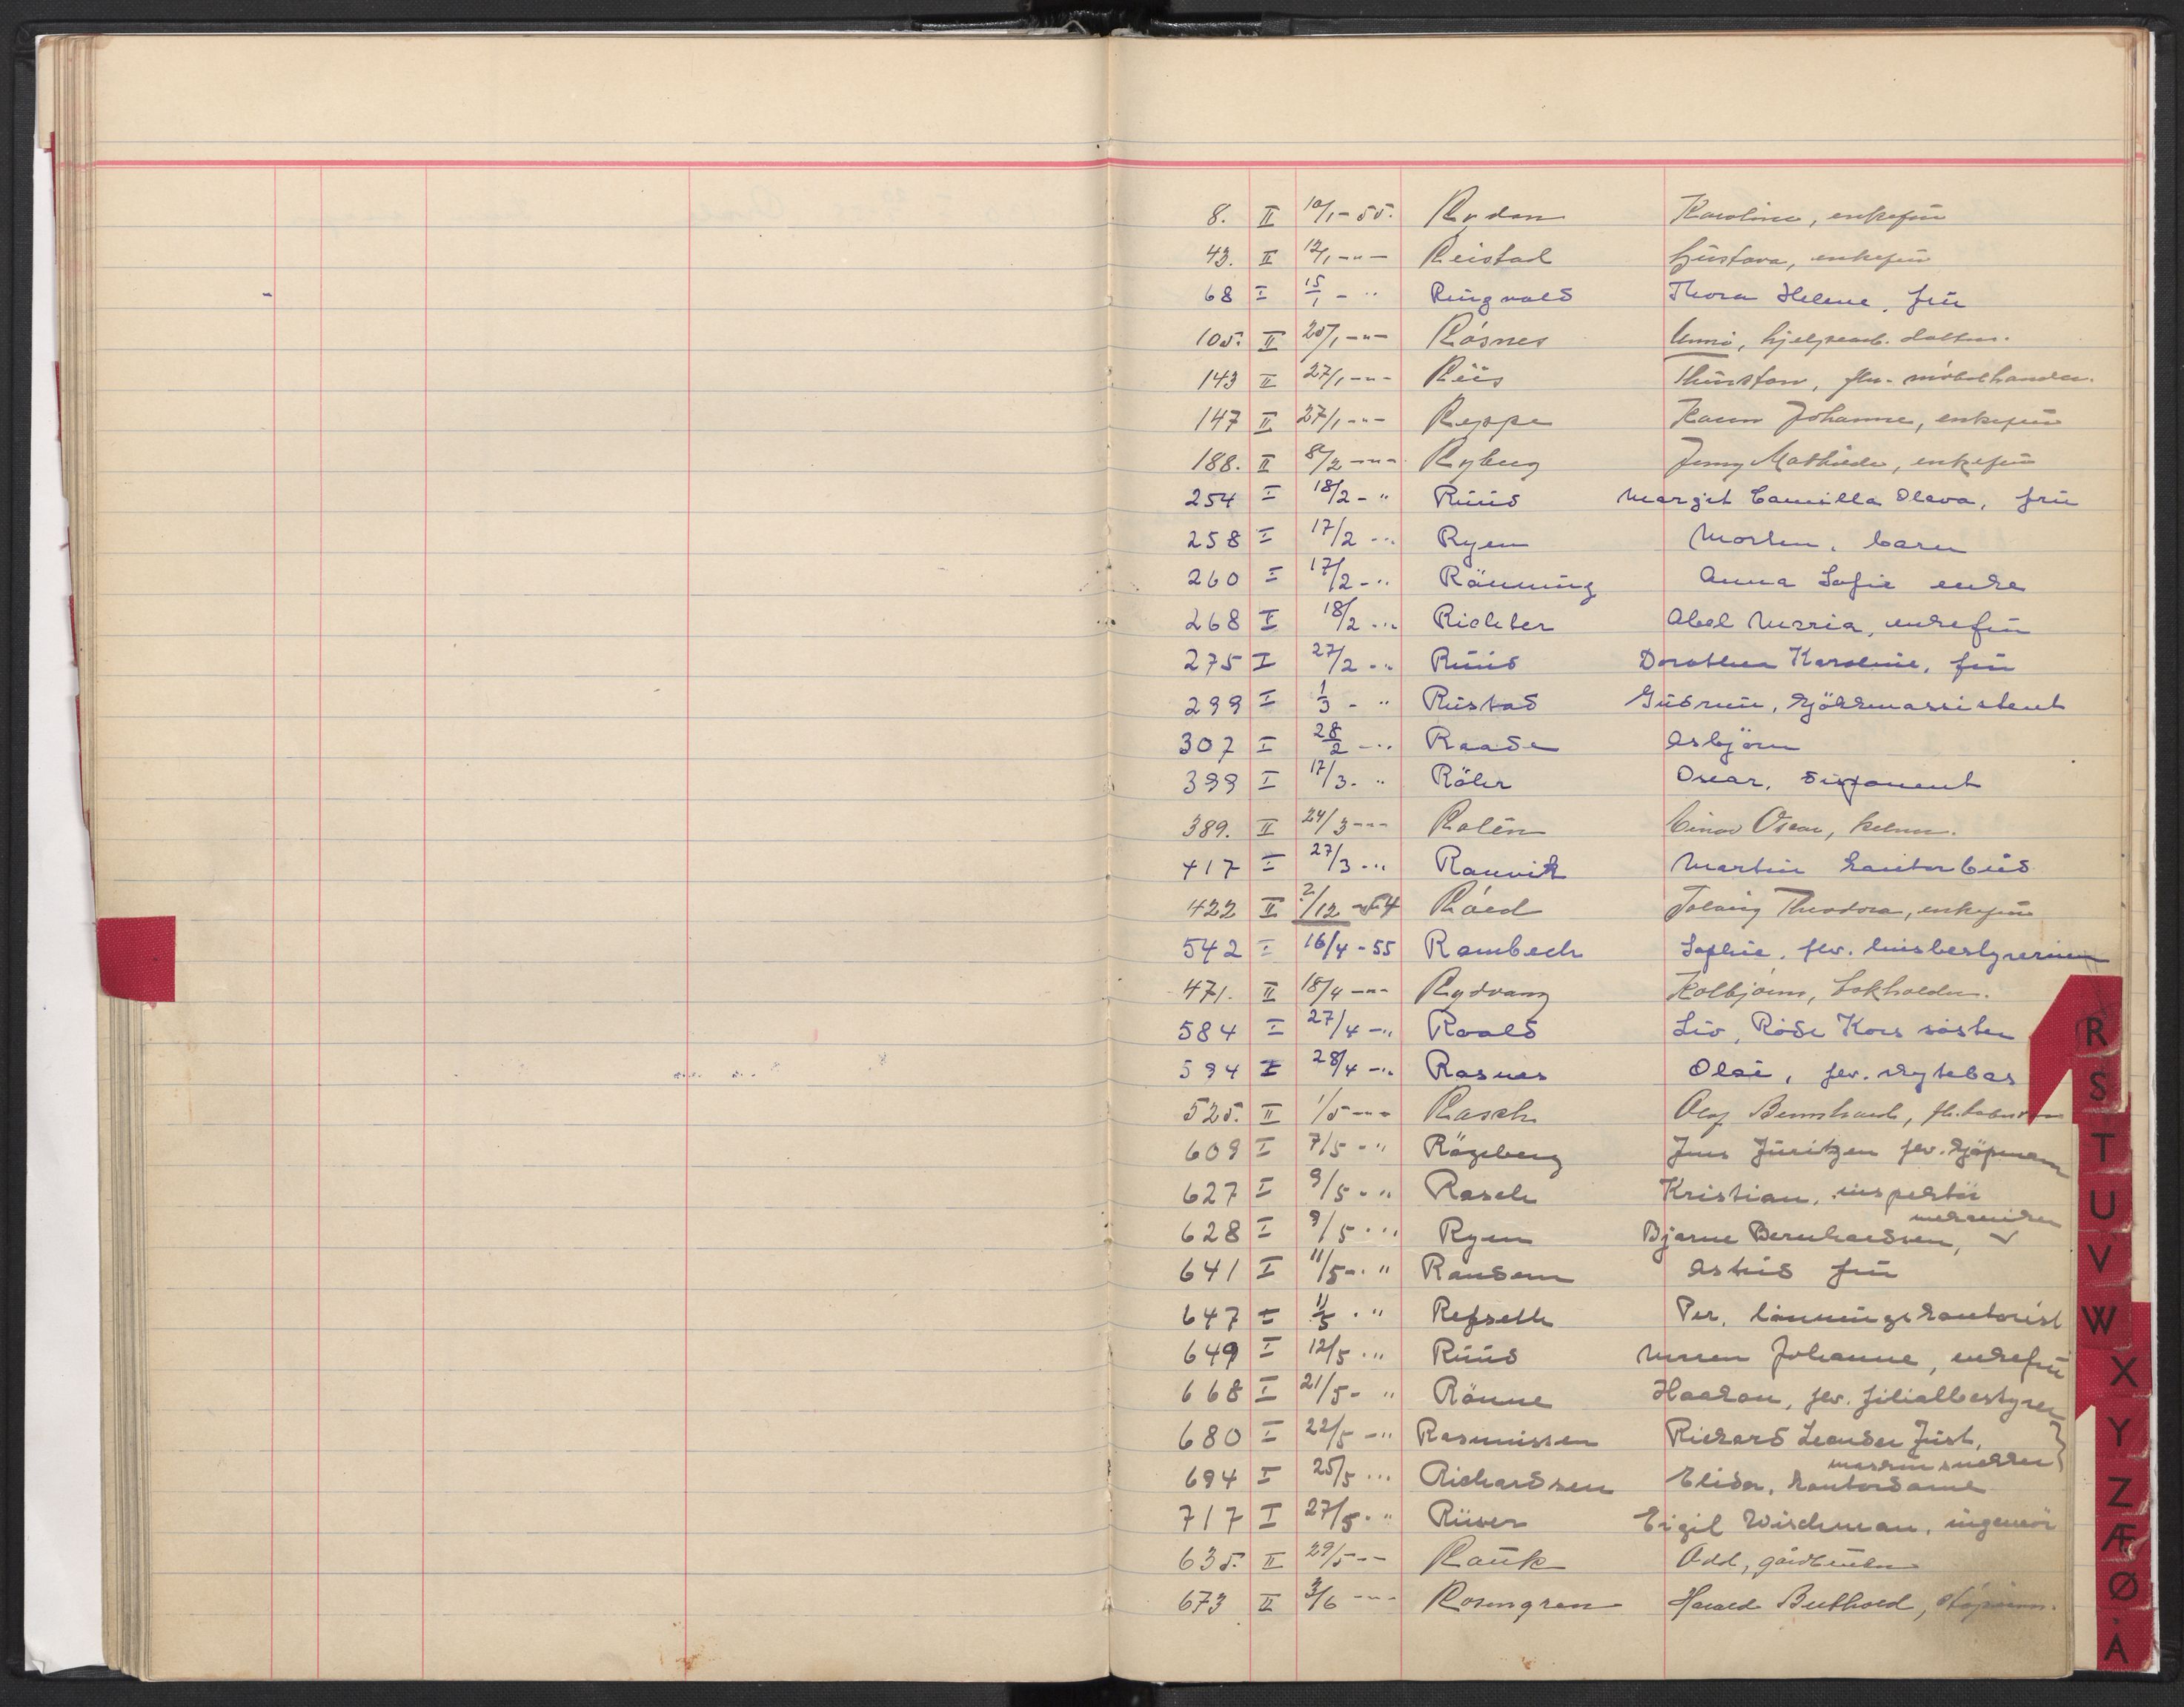 8. II 10/1-55. Rydén Karoline, enkefrü
43. II 12/1-"- Reistad Güstava, enkefrü
68 I 15/1 - " Ringvold Thora Helene, frü
105. II 25/1-"- Rósnes hjelpearb. datter.
143 II 27/1-"- Riis flv. móbelhandler.
147 II 27/1-"- Reppe Karen Johanne, enkefrü
188. II 8/2-"- Ryberg Jenny Mathilde, enkefrü
254 I 18/2 - " Rüüd Margit Camilla Olava, frü
258 I 17/2 - " Ryen Morten, barn
260 I 17/2 - " Rönning Anna Sofie enke
268 I 18/2 - " Richter Abel Maria, enkefrü
275 I 27/2 - " Rüüd Dorothea Karoline, frü
299 I 1/3 - " Rüstad Güdrün, kjökkenassistent
307 I 28/2 - " Raade Asbjörn
399 I 17/3 - " Röhr Oscar, disponent
389. II 24/3-"- Rolén Einar Oscar, kelner.
417 I 27/3 - " Ranvik Martin kontorbüd
422 II 2/12-54 Róed Solveig Theodora, enkefrü
542 I 16/4-55 Rambech Sophie, flv. hüsbestyrerinne
471. II 18/4-"- Rydvang Kolbjórn, bokholder.
584 I 27/4 - " Roald Liv, Róde Kors sóster
594 I 28/4 - " Rosnes Olai, flv. skytebas
525. II 1/5-"- Rasch Olaf Bernhard,
609 I 7/5 - " Rögeberg Jens Jüritzen flv. kjöpmann
627 I 9/5 - " Rasch Kristian, inspektör
mekaniker
628 I 9/5 - " Ryen Bjarne Bernhardsen,
641 I 11/5 - " Randem Astrid frü
647 I 11/5 - " Refseth Per, lönningskontorist
649 I 12/5 - " Rüüd Maren Johanne, enkefrü
668 I 21/5 - " Rönne Haakon, flv. filialbestyrer
680 I 22/5 - " Rasmüssen Rickard Leander Jüst,
maskinsnekker
694 I 25/5 - " Richardsen Elida, kontordame
717 I 27/5 - " Rüver Eigil Wischman, ingeniör
635. II 29/5-"- Raük Odd, gårdbrüker
673 II 3/6-"- Rosengren Harald Berthold,
R
S
T
U
V
W
X
Y
Z
Æ
Ø
Å